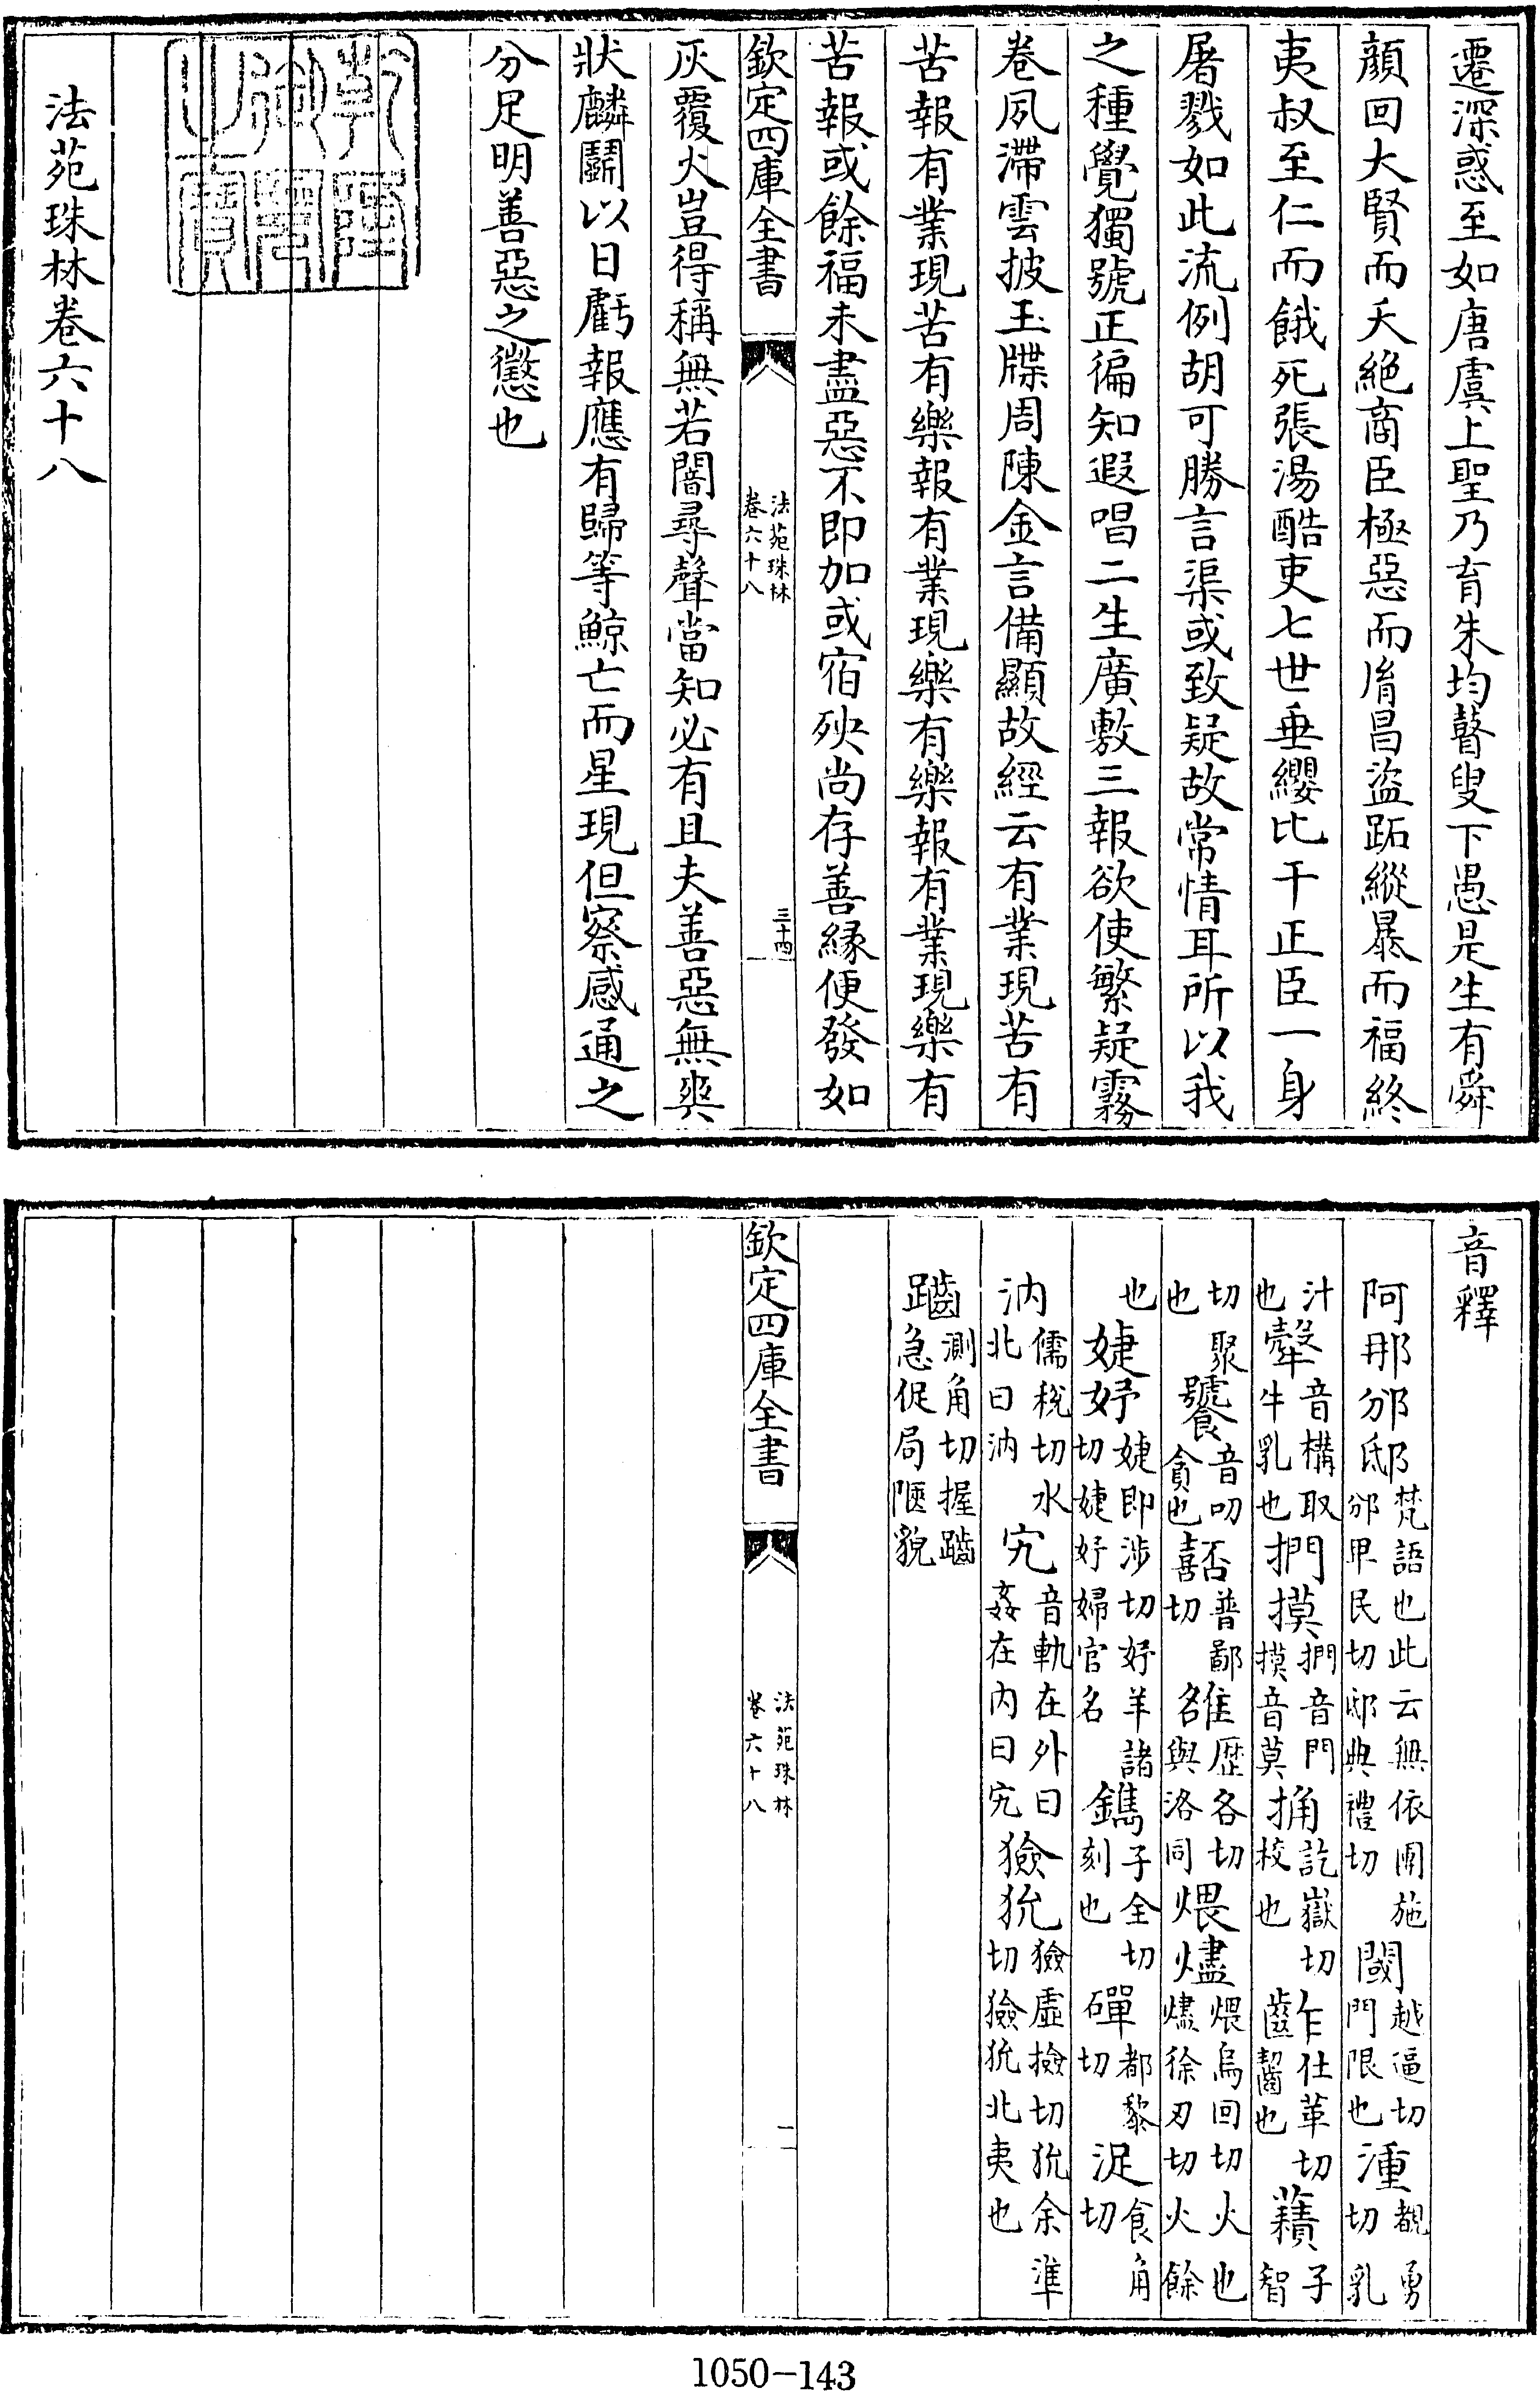 遷深惑至如唐虞上聖乃育朱均瞽叟下愚是生有舜
顔回大賢而夭絶商臣極惡而胤昌盜跖縱暴而福終
夷叔至仁而餓死張湯酷吏七世垂纓比干正臣一身
屠戮如此流例胡可勝言渠或致疑故常情耳所以我
之種覺獨號正徧知遐唱二生廣敷三報欲使繁疑霧
卷夙滯雲披玉牒周陳金言備顯故經云有業現苦有
苦報有業現苦有樂報有業現樂有樂報有業現樂有
苦報或餘福未盡惡不即加或宿殃尚存善縁便發如
欽定四庫全書
法苑珠林
卷六十八
三十四
灰覆火豈得稱無若闇尋聲當知必有且夫善惡無爽
狀麟鬭以日虧報應有歸等鯨亡而星現但察感通之
分足明善惡之懲也
乾隆御覽之寶
法苑珠林卷六十八
音釋
阿那邠邸梵語也此云無依團施邠卑民切邸典禮切閾越逼切門限也湩覩勇切乳
汁也㝅音構取牛乳也捫摸捫音門摸音莫捔訖嶽切校也齚仕革切齧也積子智
切聚也饕音叨貪也嚭普鄙切雒歴各切名與洛同煨燼煨烏回切火也燼徐刃切火餘
也婕妤婕即涉切妤羊諸切婕妤婦官名鐫子全切刻也磾都黎切浞食角切
汭儒稅切水北曰汭宄音軌在外曰姦在内曰宄獫狁獫虚撿切狁余準切獫狁北夷也
齪測角切握齪急促局陿貌
欽定四庫全書
法苑珠林
卷六十八
一
1050-143